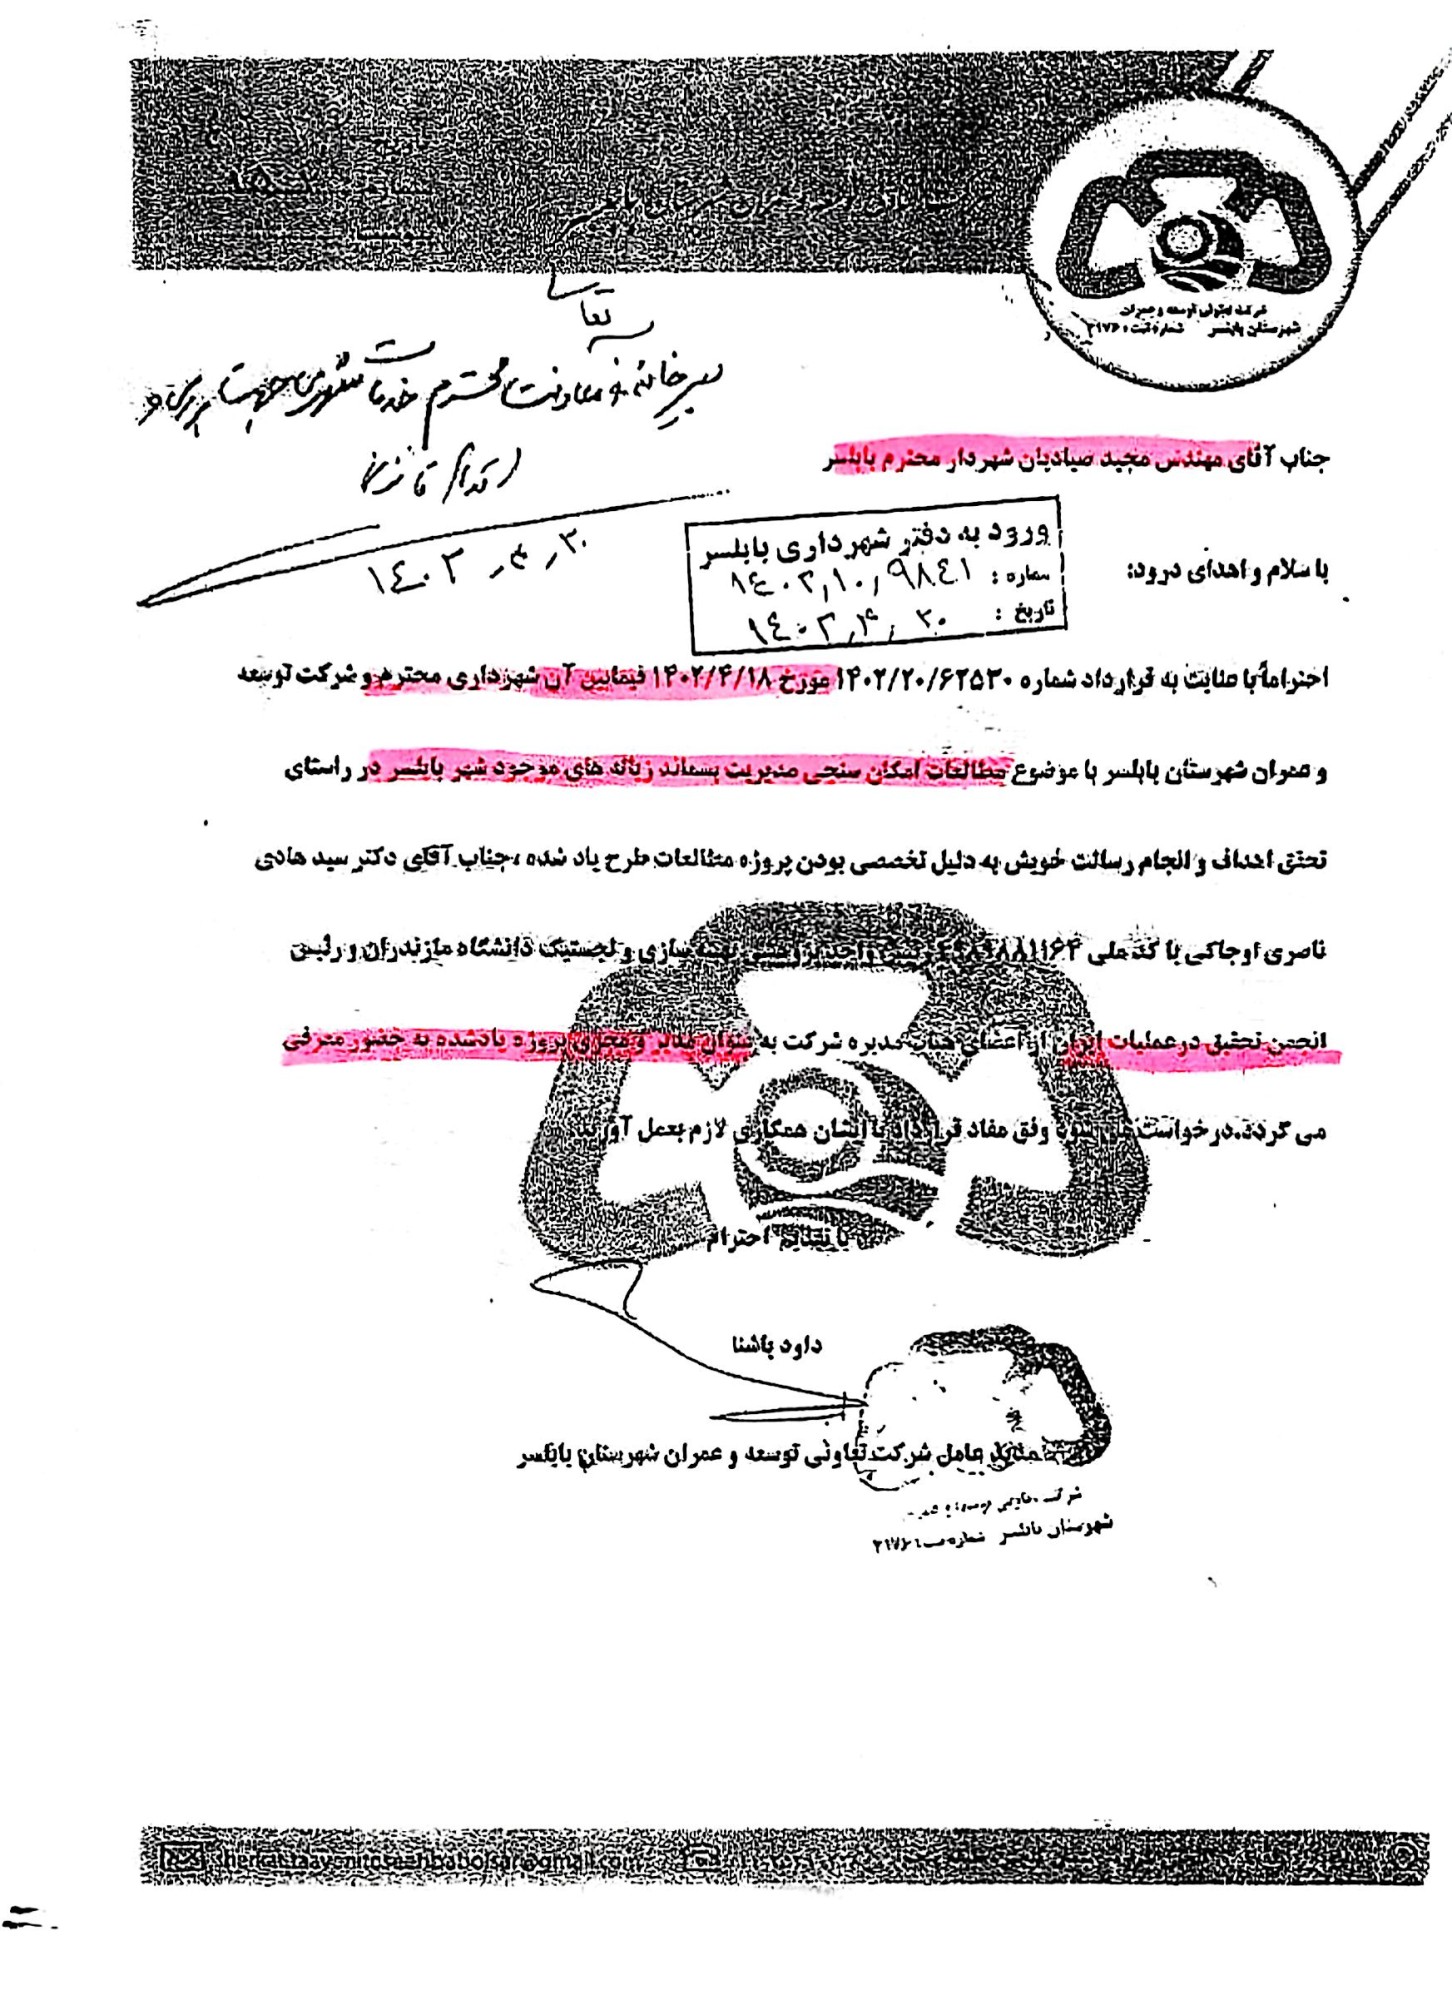 شرکت تعاونی توسعه و عمران
شهرستان بابلسر شماره ثبت ۲۱۷۶
دبیرخانه
معاونت محترم خدمات شهری جهت بررسی و
اقدام قانونی
۱۴۰۲٫۴٫۲۰
جناب آقای مهندس مجید صیادیان شهردار محترم بابلسر
ورود به دفتر شهرداری بابلسر
شماره : ۱۴۰۲٫۱۰٫۹۸۴۱
تاریخ : ۱۴۰۲٫۴٫۲۰
با سلام و اهدای درود:
احتراماً با عنایت به قرارداد شماره ۱۴۰۲/۲۰/۶۲۵۳۰ مورخ ۱۴۰۲/۴/۱۸ فیمابین آن شهرداری محترم و شرکت توسعه
و عمران شهرستان بابلسر با موضوع مطالعات امکان سنجی مدیریت پسماند زباله های موجود شهر بابلسر در راستای
تحقق اهداف و انجام رسالت خویش به دلیل تخصصی بودن پروژه مطالعات طرح یاد شده ،جناب آقای دکتر سید هادی
ناصری اوجاکی با کد ملی رئیس واحد پژوهشی بهینه سازی و لجستیک دانشگاه مازندران و رئیس
انجمن تحقیق در عملیات ایران از اعضای هیات مدیره شرکت به عنوان مدیر و مجری پروژه یادشده به حضور معرفی
می گردد.درخواست می شود وفق مفاد قرارداد با ایشان همکاری لازم بعمل آورند.
با تقدیم احترام
داود باشنا
مدیر عامل شرکت تعاونی توسعه و عمران شهرستان بابلسر
شرکت تعاونی توسعه و عمران
شهرستان بابلسر شماره ثبت ۲۱۷۶